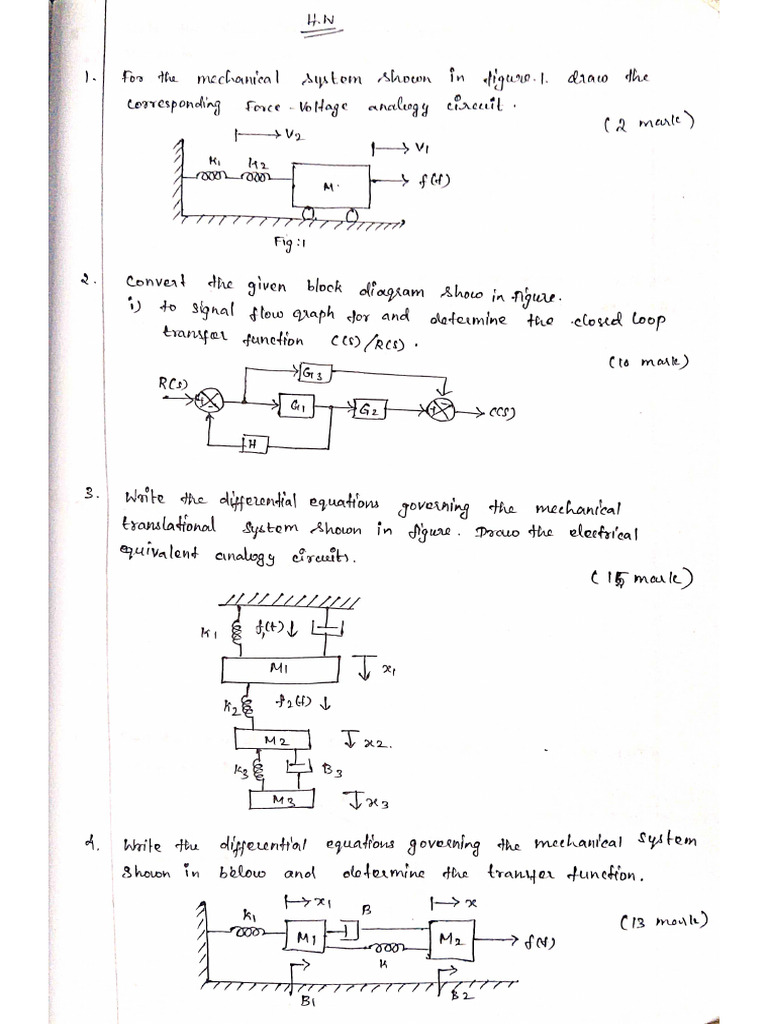 H.W
1. For the mechanical system shown in figure.1. draw the
corresponding Force-Voltage analogy circuit.
(2 mark)
V2
V1
K1 K2
M.
f(t)
Fig:1
2. Convert the given block diagram show in figure.
i) to signal flow graph for and determine the closed loop
transfer function C(S)/R(S).
(10 mark)
G3
R(S)
+ -
G1
G2
+ -
C(S)
H
3. Write the differential equations governing the mechanical
translational system shown in figure. Draw the electrical
equivalent analogy circuits.
(15 mark)
K1
f1(t)
M1
x1
K2
f2(t)
M2
x2.
K3
B3
M3
x3
4. Write the differential equations governing the mechanical system
shown in below and determine the transfer function.
(13 mark)
x1
B
x
K1
M1
M2
f(t)
K
B1
B2